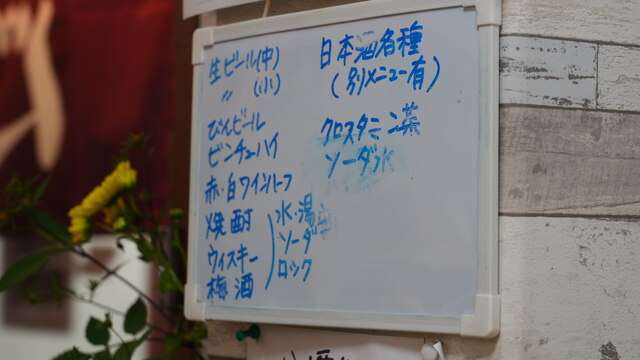 生ビール(中)
〃 (小)
びんビール
ビンチューハイ
赤・白ワインハーフ
焼酎
ウィスキー
梅酒
水・湯
ソーダ
ロック
日本酒各種
(別メニュー有)
クロスタミン茶
ソーダ水